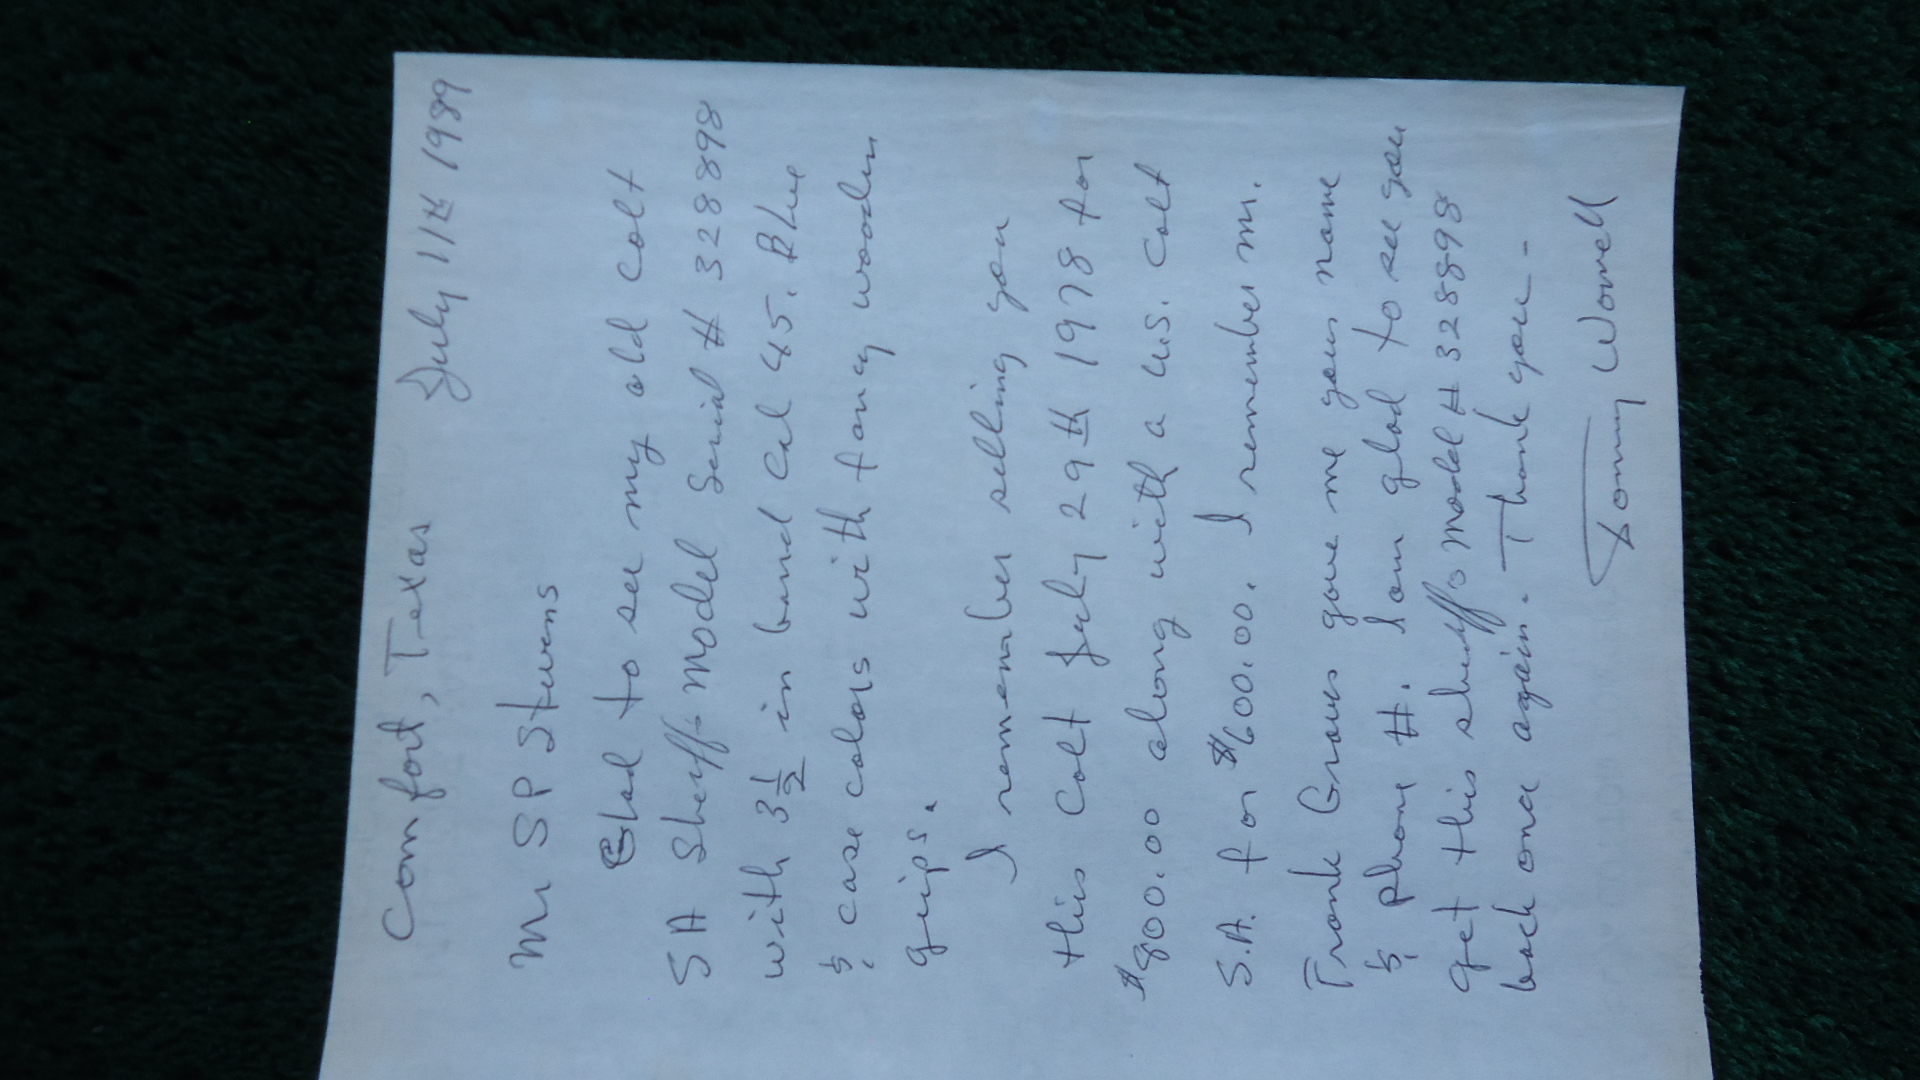 Comfort, Texas July 11th 1989
Mr SP Stevens
Glad to see my old Colt
SA Sheriffs Model Serial # 328898
with 3 1/2 in barrel Cal 45. Blue
& case colors with fancy wooden
grips.
I remember selling you
this Colt July 29th 1978 for
$800.00 along with a U.S. Colt
S.A. for $600.00. I remember Mr.
Frank Graves gave me your name
& phone #. I am glad to see you
get this sheriffs model # 328898
back once again. Thank you -
Tommy Worrell